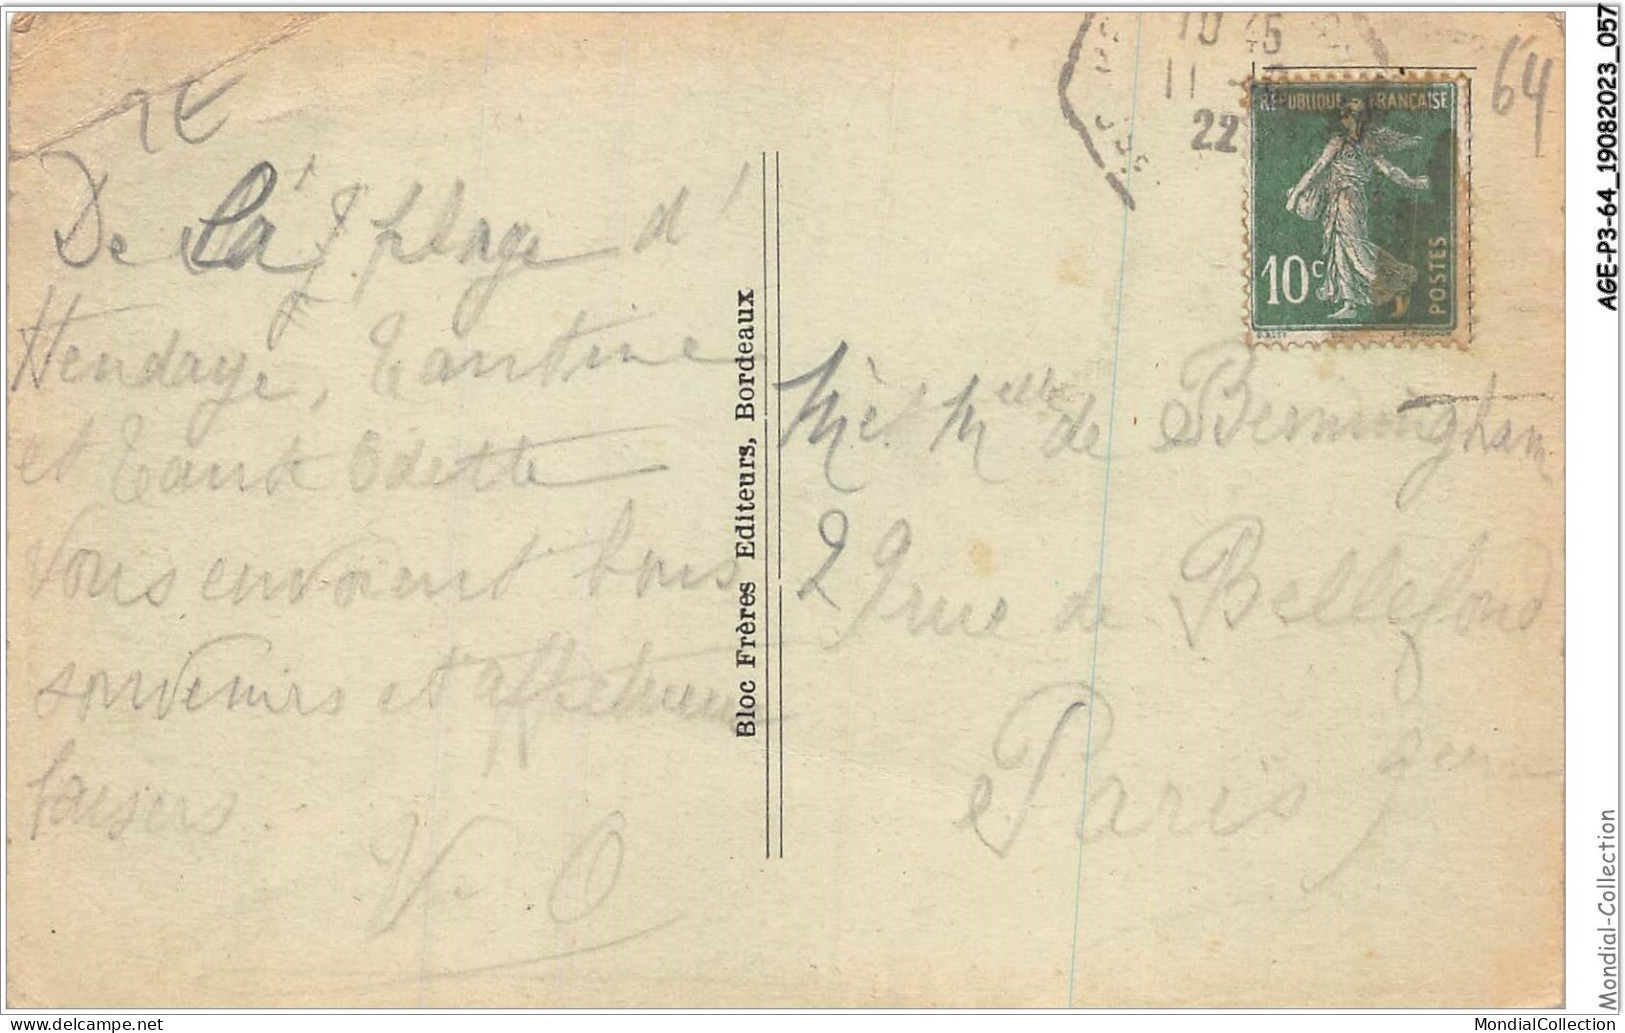 9E
64
10 45
11
22
REPUBLIQUE FRANCAISE
10c
POSTES
De La plage d'
Hendaye, Tantine
et Tante Odette
vous envoient bons
souvenirs et affectueux
baisers.
V. O
Bloc Frères Editeurs, Bordeaux
Me et Melle de Bermingham
29 rue de Bellefond
Paris 9eme
AGE-P3-64_19082023_057
Mondial-Collection
delcampe.net
MondialCollection